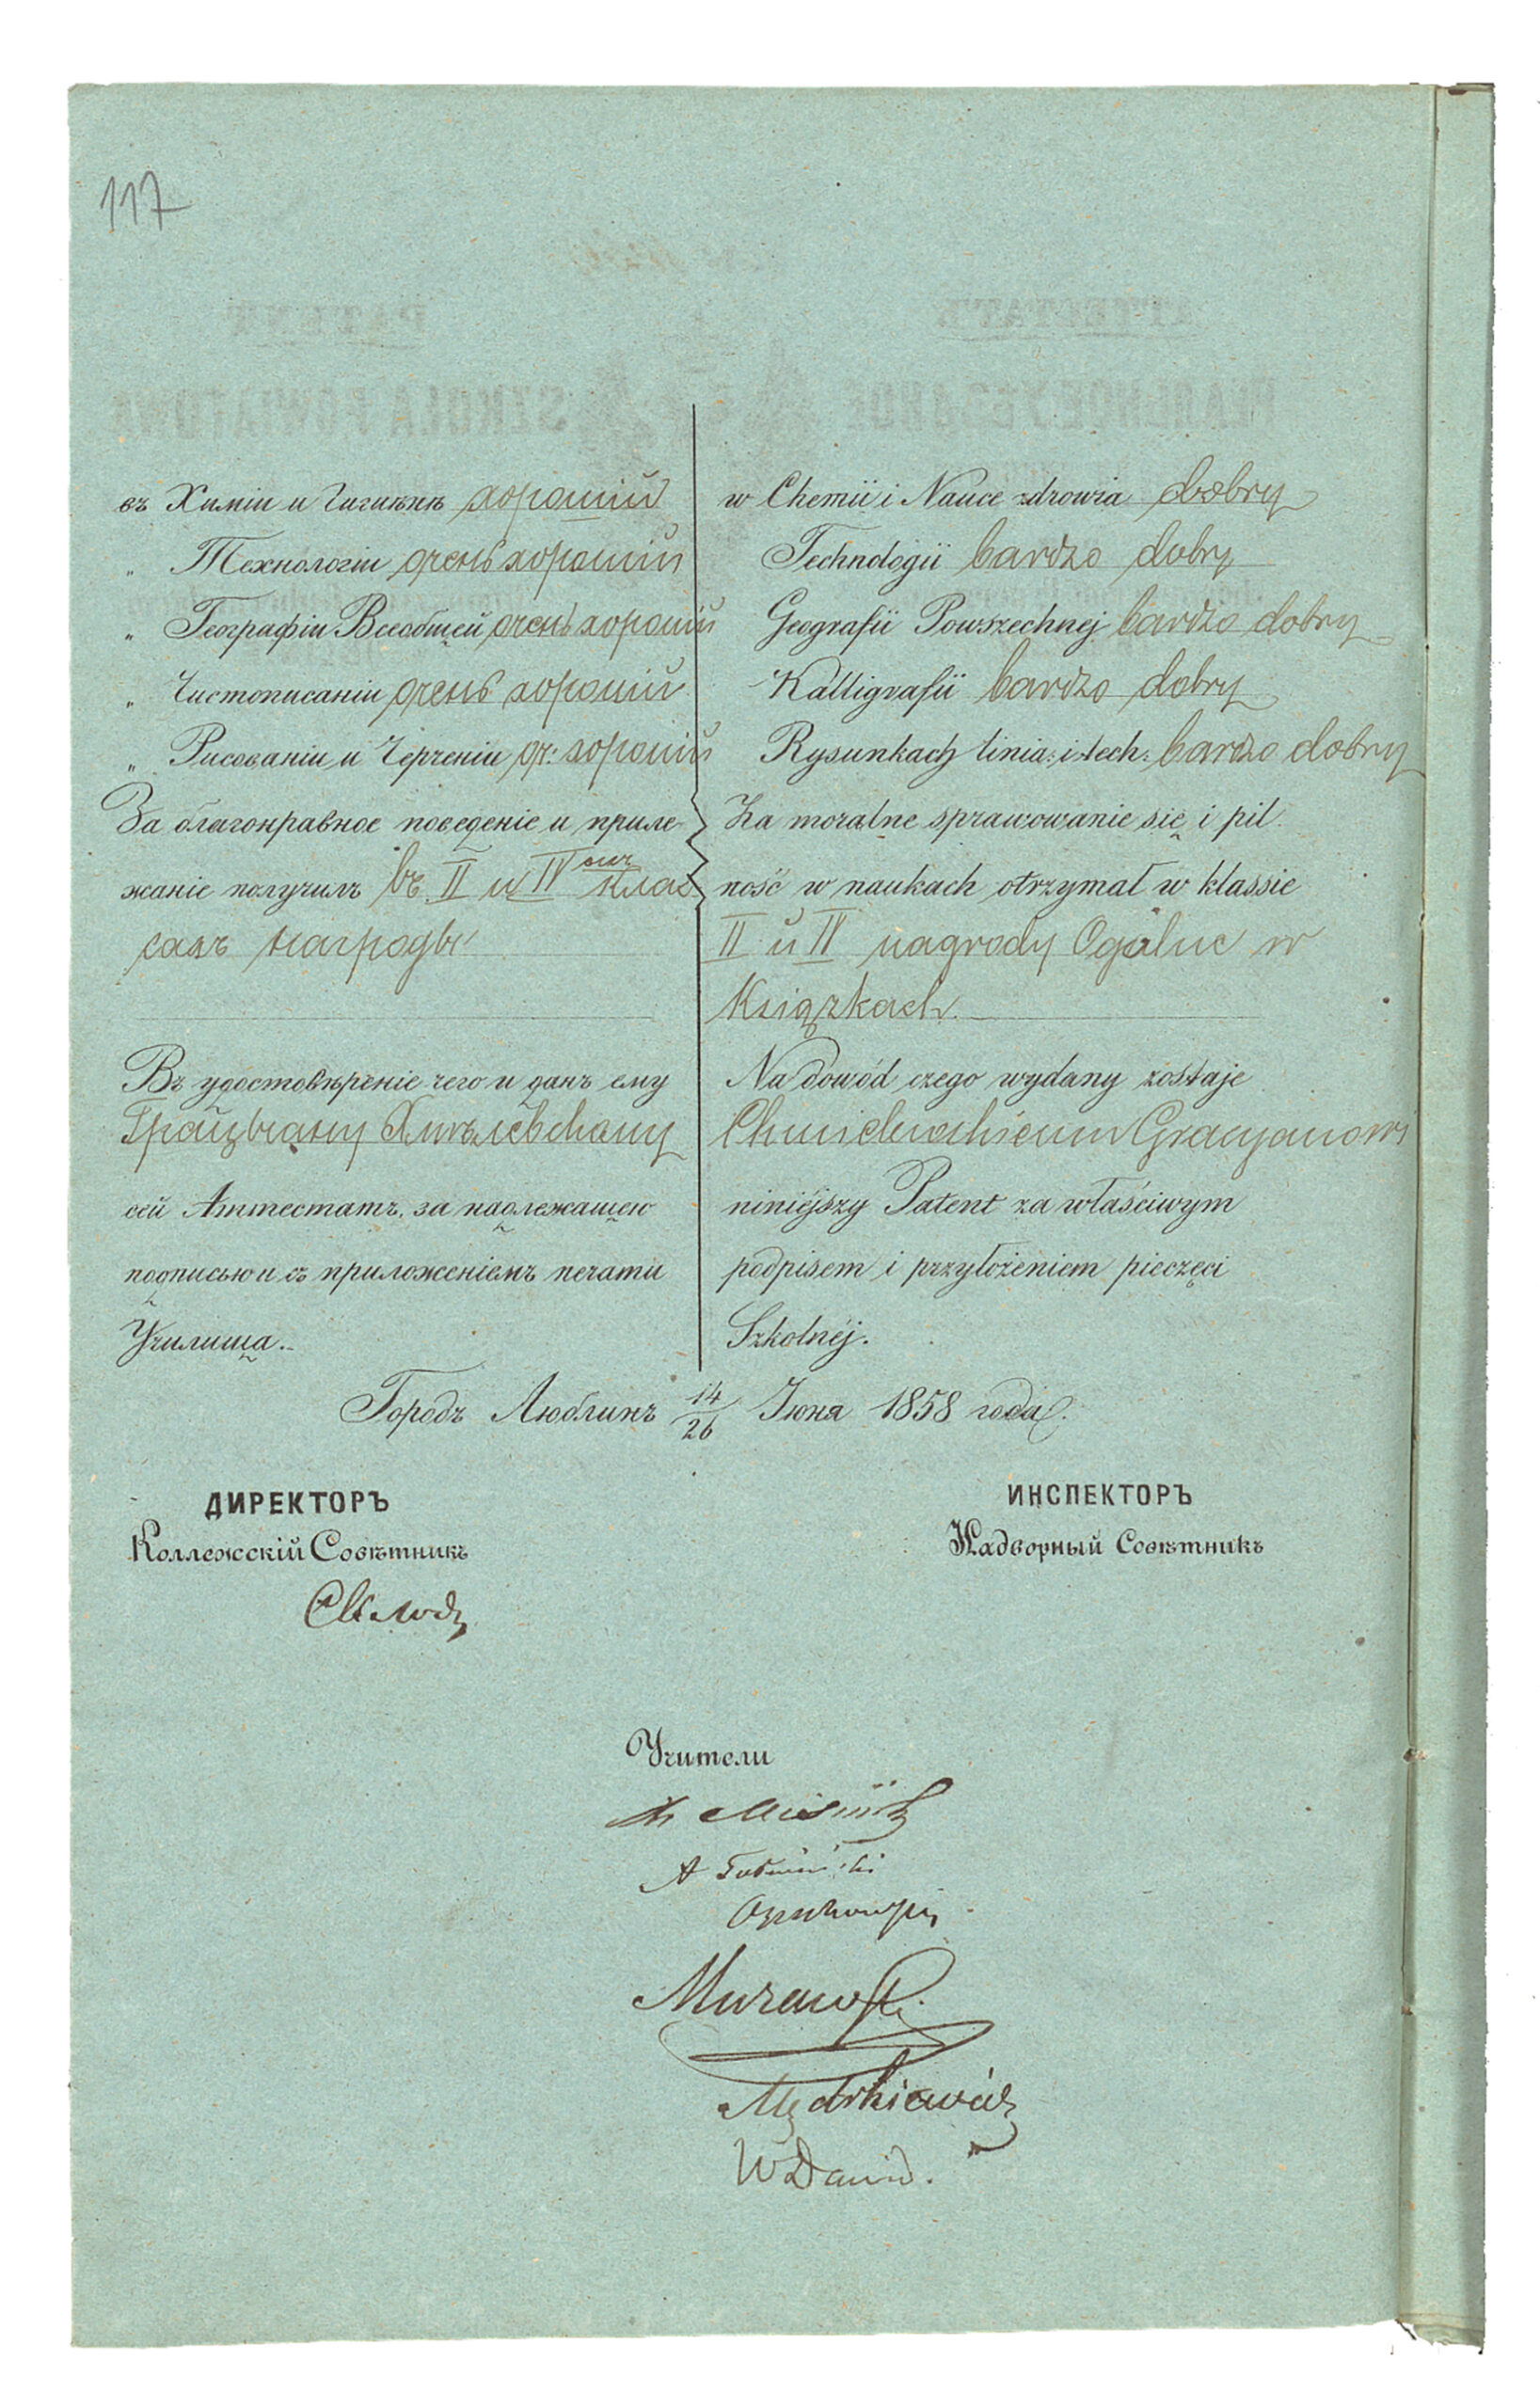 117
въ Химіи и Гигіенѣ хорошій
„ Технологіи очень хорошій
„ Географіи Всеобщей очень хорошій
„ Чистописаніи очень хорошій
„ Рисованіи и Черченіи оч: хорошій
За благонравное поведеніе и приле-
жаніе получилъ въ II и IV омъ клас
сахъ награды
Въ удостовѣреніе чего и данъ ему
Грацыану Хмѣлевскому
сей Аттестатъ, за надлежащею
подписью и съ приложеніемъ печати
Училища.
w Chemii i Nauce zdrowia dobry
Technologii bardzo dobry
Geografii Powszechnej bardzo dobry
Kalligrafii bardzo dobry
Rysunkach linia: i tech: bardzo dobry
Za moralne sprawowanie się i pil
ność w naukach otrzymał w klassie
II i IV nagrody Ogólne w
Książkach.
Na dowód czego wydany zostaje
Chmielewskiemu Gracyanowi
niniéjszy Patent za właściwym
podpisem i przyłożeniem pieczęci
Szkolnéj.
Городъ Люблинъ 14/26 Іюня 1858 года.
ДИРЕКТОРЪ
Коллежскій Совѣтникъ
ИНСПЕКТОРЪ
Надворный Совѣтникъ
Учители
W David.